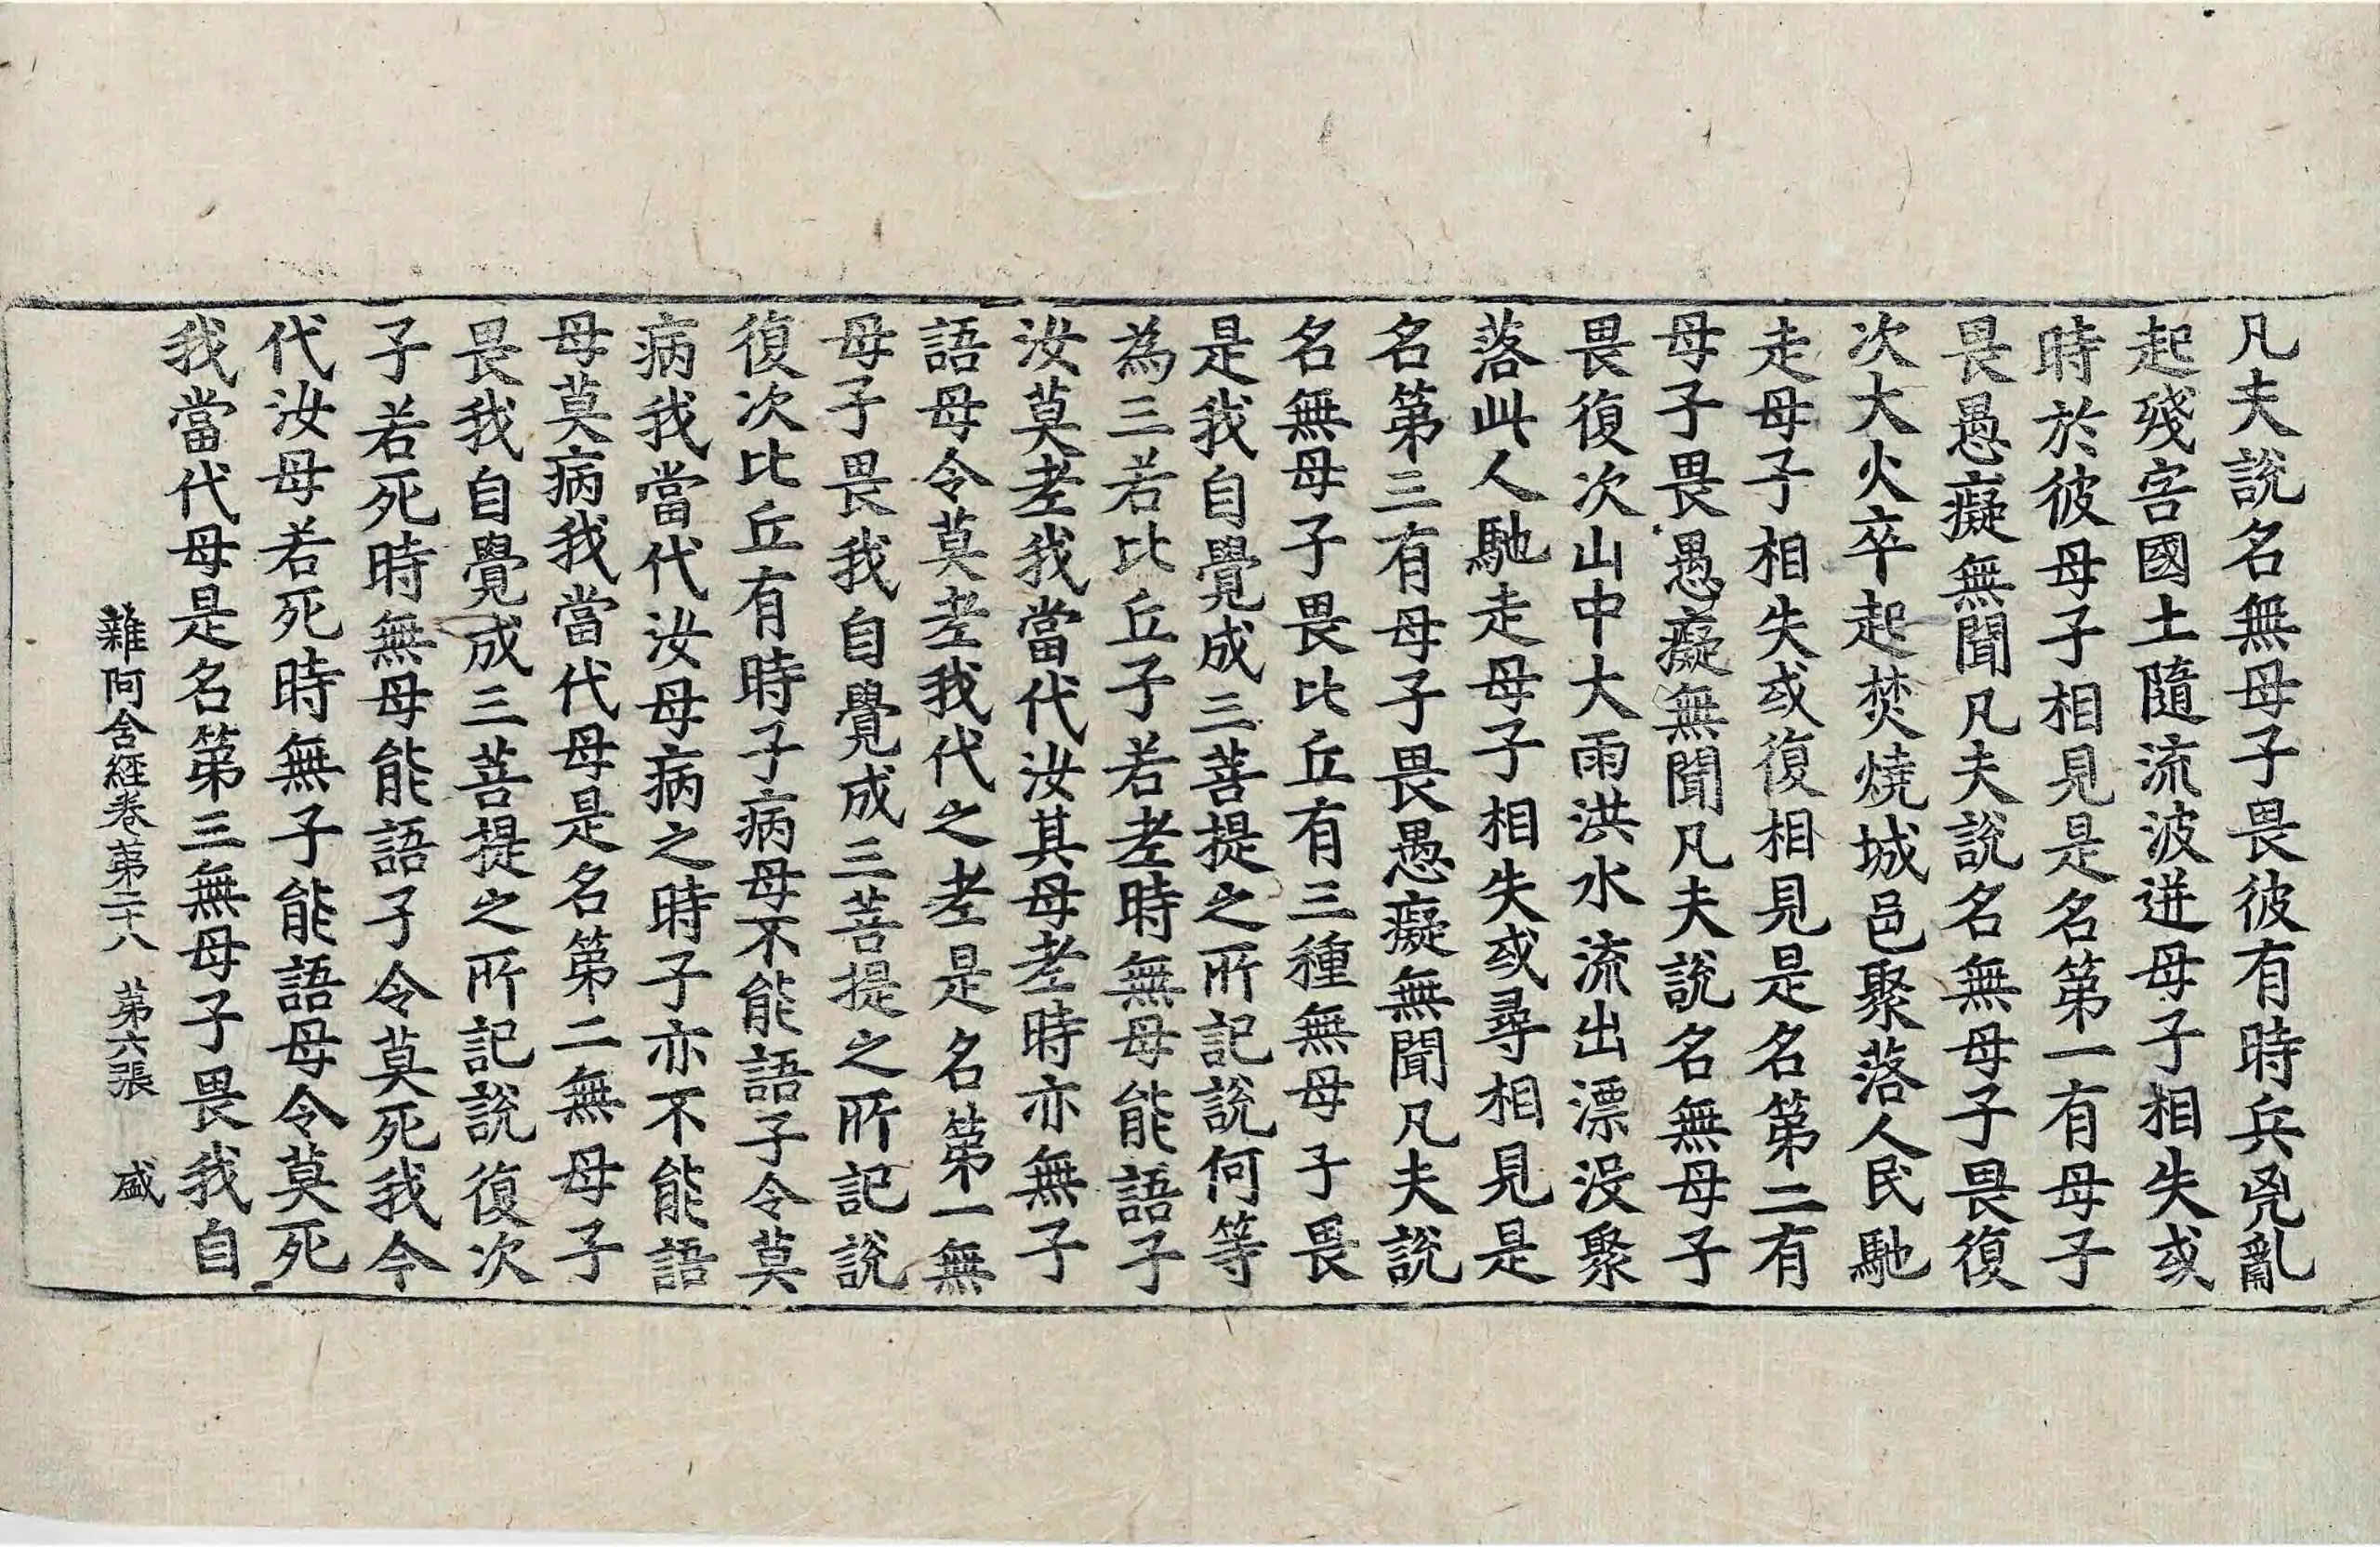 凡夫說名無母子畏彼有時兵兇亂
起殘害國土隨流波迸母子相失或
時於彼母子相見是名第一有母子
畏愚癡無聞凡夫說名無母子畏復
次大火卒起焚燒城邑聚落人民馳
走母子相失或復相見是名第二有
母子畏愚癡無聞凡夫說名無母子
畏復次山中大雨洪水流出漂沒聚
落此人馳走母子相失或尋相見是
名第三有母子畏愚癡無聞凡夫說
名無母子畏比丘有三種無母子畏
是我自覺成三菩提之所記說何等
為三若比丘子若老時無母能語子
汝莫老我當代汝其母老時亦無子
語母令莫老我代之老是名第一無
母子畏我自覺成三菩提之所記說
復次比丘有時子病母不能語子令莫
病我當代汝母病之時子亦不能語
母莫病我當代母是名第二無母子
畏我自覺成三菩提之所記說復次
子若死時無母能語子令莫死我今
代汝母若死時無子能語母令莫死
我當代母是名第三無母子畏我自
雜阿含經卷第二十八 第六張 盛